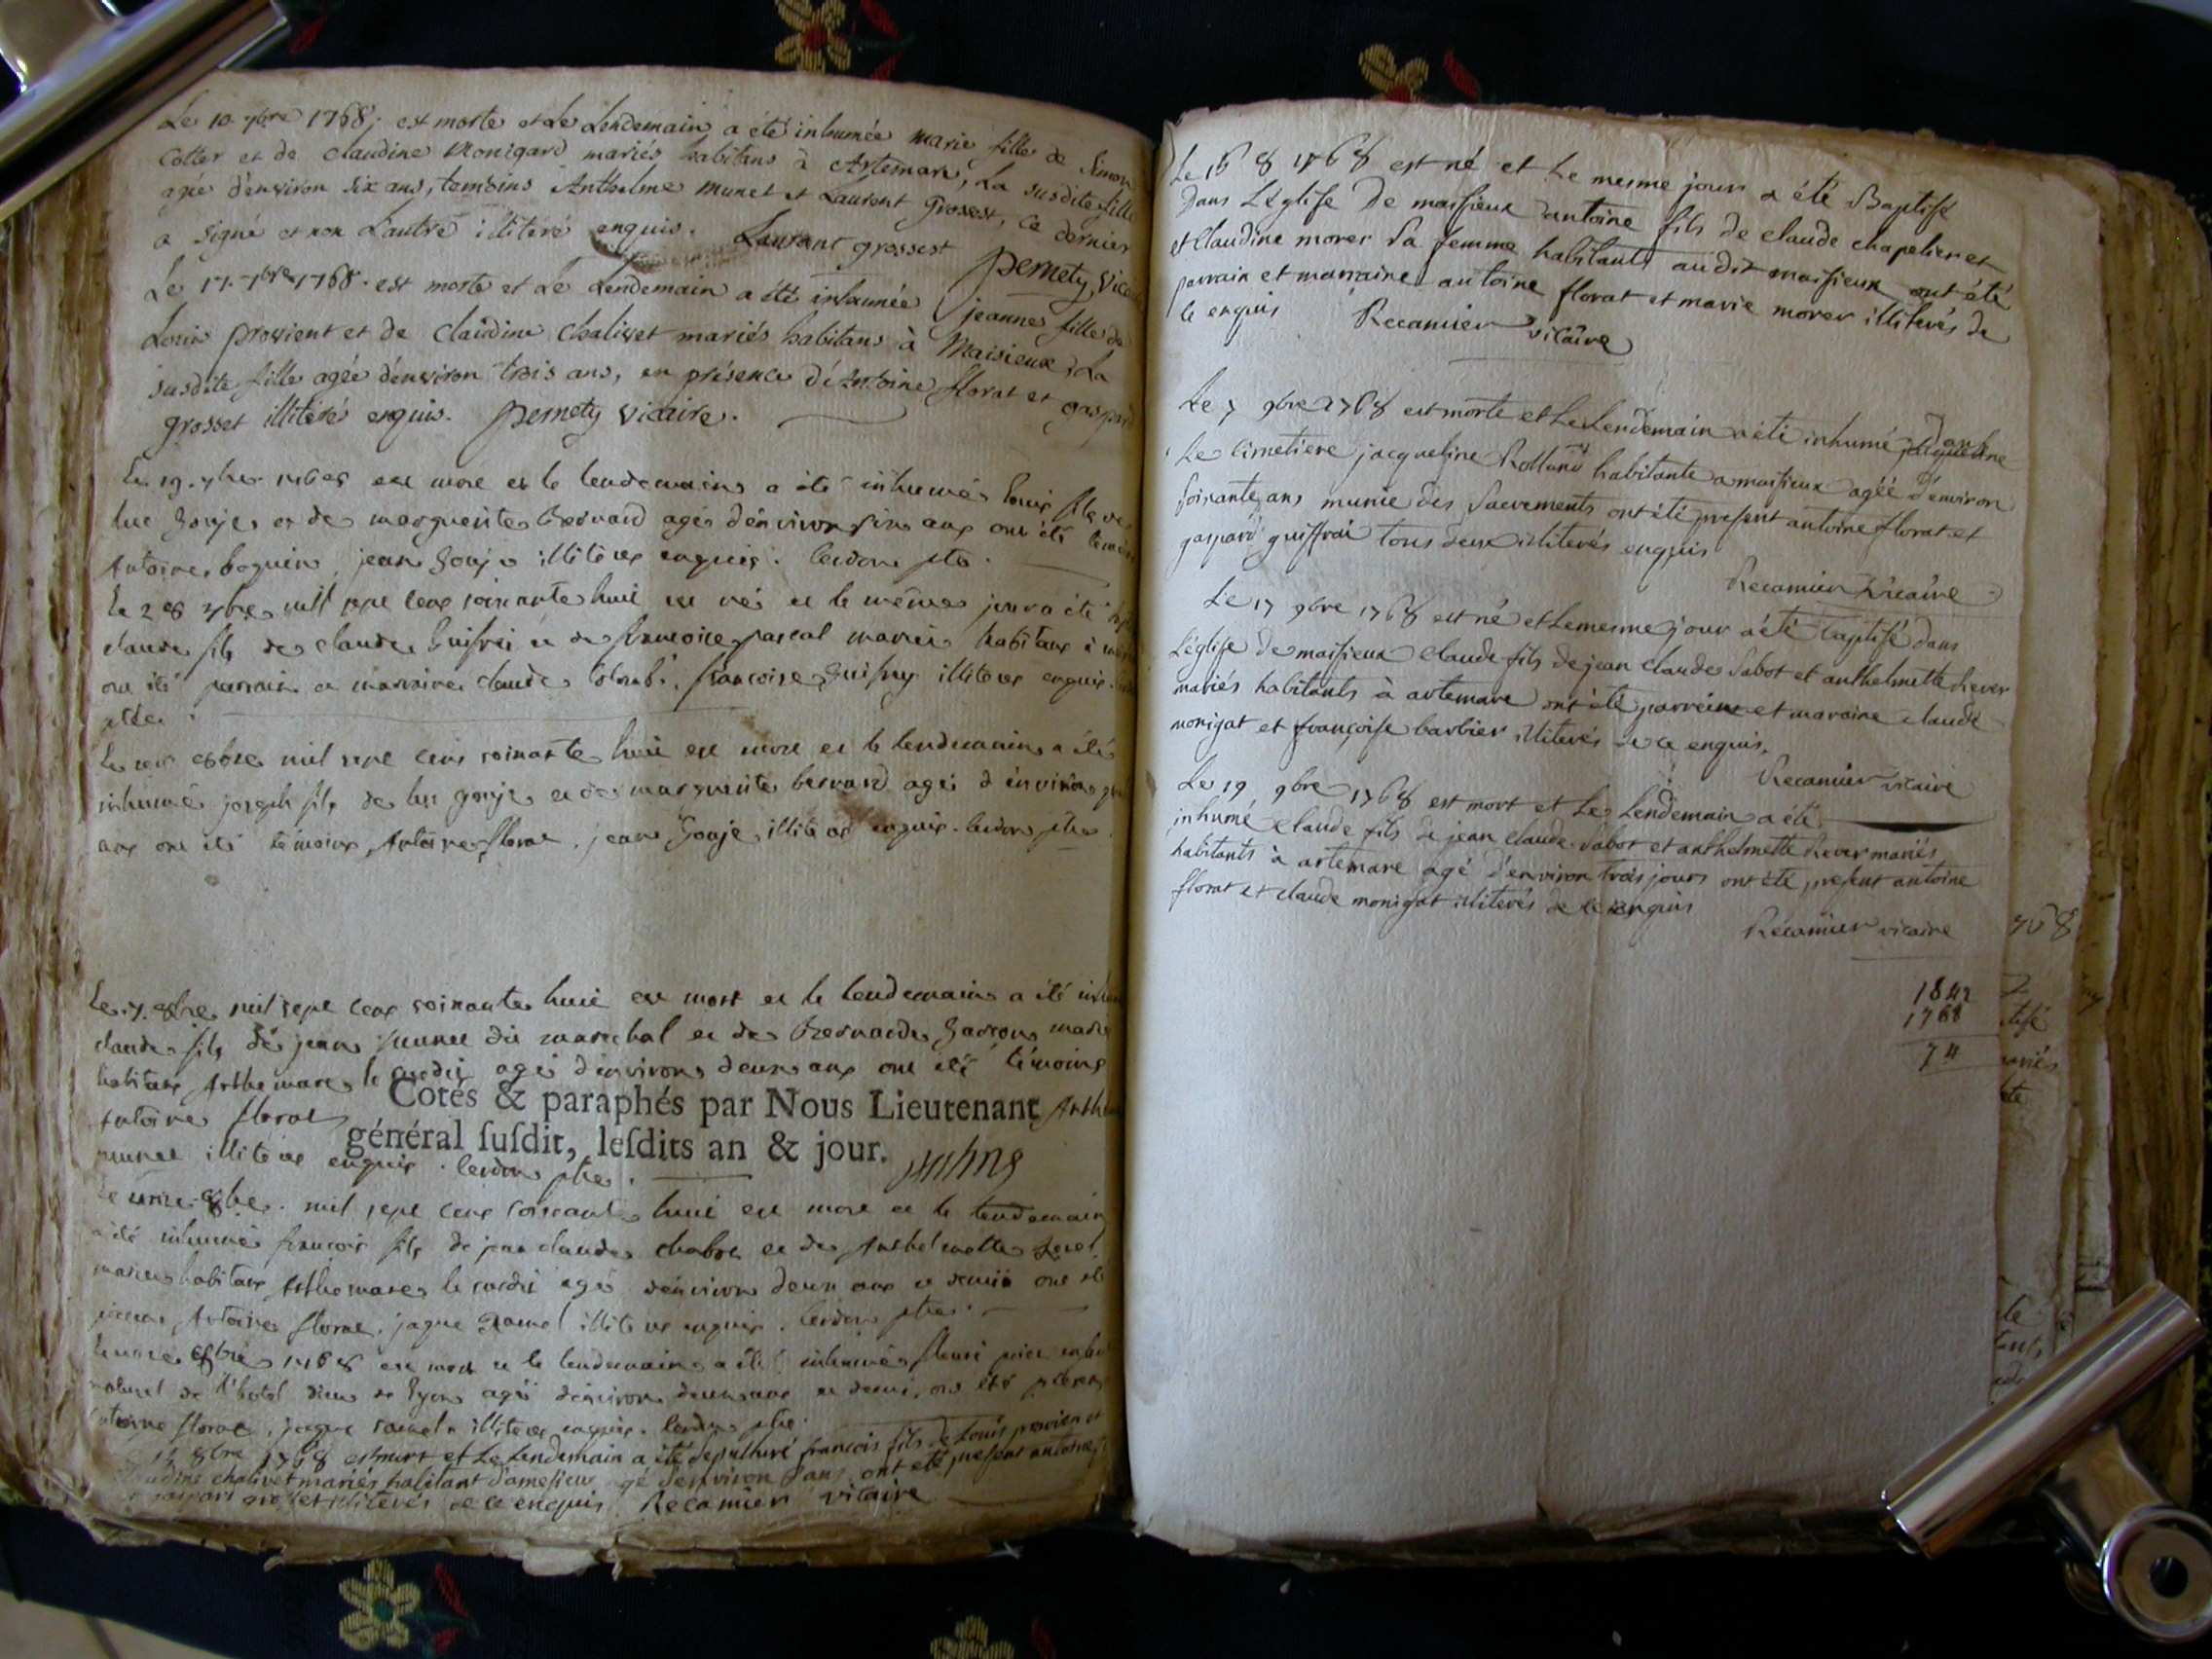 Le 10 7bre 1768; est morte et Le Lendemain a été inhumée marie fille de Simon
Cotter et de claudine Monigard mariés habitans à Artemare, La susdite fille
agée d'environ six ans, temoins Anthelme munet et Laurent Grosset, ce dernier
a signé et non L'autre illiteré enquis. Laurant grosset Pernety Vicaire
Le 17. 7bre 1768. est morte et Le Lendemain a été inhumée jeanne fille de
Louis provient et de claudine chalivet mariés habitans à Maisieux, La
susdite fille agée d'environ trois ans, en présence d'Antoine florat et gaspard
grosset illiterés enquis. Pernety Vicaire.
le 19. 7bre 1768 est mort et le lendemains a été inhumés louis fils de
luc Gouje et de marguerite Bernard agés d'environ ans ont été temoins
Antoine boquin, jean Gouje illiteres enquis. lerdon ptre.
le 28 7bre mill sept cens soixante huit est né et le même jour a été
claude fils de claude Guifrei et de francoise pascal mariés habitans à
ont été parrain et marraine claude françoise Guifrey illiteres enquis
ptre.
le 8bre mil sept cens soixante huit est mort et le lendemains a été
inhumé joseph fils de luc gouje et de marguerite bernard agé d'environ
ans ont été témoins Antoine florat, jean Gouje illiteres enquis. lerdon ptre.
le 7. 8bre mil sept cens soixante huit est mort et le lendemains a été
claude fils de jean munet dit marechal et de Bernarde mariés
habitans Arthemare le susdit agé d'environs deux ans ont été témoins
Cotés & paraphés par Nous Lieutenant
Antoine florat Anth
général ſuſdit, leſdits an & jour.
munet illiteres enquis. lerdon ptre.
le onze 8bre. mil sept cens soixante huit est mort et le lendemain
a été inhumé françois fils de jean claude chabot et de Anthelmette
mariés habitans Arthemare le susdit agé d'environ deux ans et demi ont été
Antoine florat, jaque ramel illiteres enquis. lerdon ptre.
le onze 8bre 1768 est mort et le lendemain a été inhumé
naturel de l'hotel dieu de lyon agé d'environ deux ans et demi, ont été présens
Antoine florat, jaque ramel illiteres enquis. lerdon ptre.
8bre 1768 est mort et Le Lendemain a été sepulturé francois fils de Louis provien et
claudine chalivet mariés habitant d'environ ans ont été present antoine
illiterés de ce enquis Recamier vicaire
Le 16 8 1768 est né et Le mesme jour a été Baptisé
Dans L'église De maissieux antoine fils de claude chapelier et
et Claudine morer Sa femme habitants audit maissieux ont été
parrain et marraine antoine florat et marie morer illiterés de
ce enquis Recamier vicaire
Le 7 9bre 1768 est morte et Le Lendemain a été inhumé Dans
Le cimetiere jacqueline Rolland habitante a maissieux agée d'environ
soixante ans munie des Sacrements ont été present antoine florat et
gaspard guiffrai tous deux illiterés enquis
Recamier Vicaire
Le 17 9bre 1768 est né et Le mesme jour a été baptisé dans
L'église de maissieux claude fils de jean claude Sabot et anthelmette
mariés habitants à artemare ont été parrein et maraine claude
monigat et françoise barbier illiterés de ce enquis.
Recamier vicaire
Le 19 9bre 1768 est mort et Le Lendemain a été
inhumé claude fils de jean claude Sabot et anthelmette mariés
habitants à artemare agé d'environ trois jours ont été present antoine
florat et claude monigat illiterés de ce enquis
Recamier vicaire
1842
1768
74
768